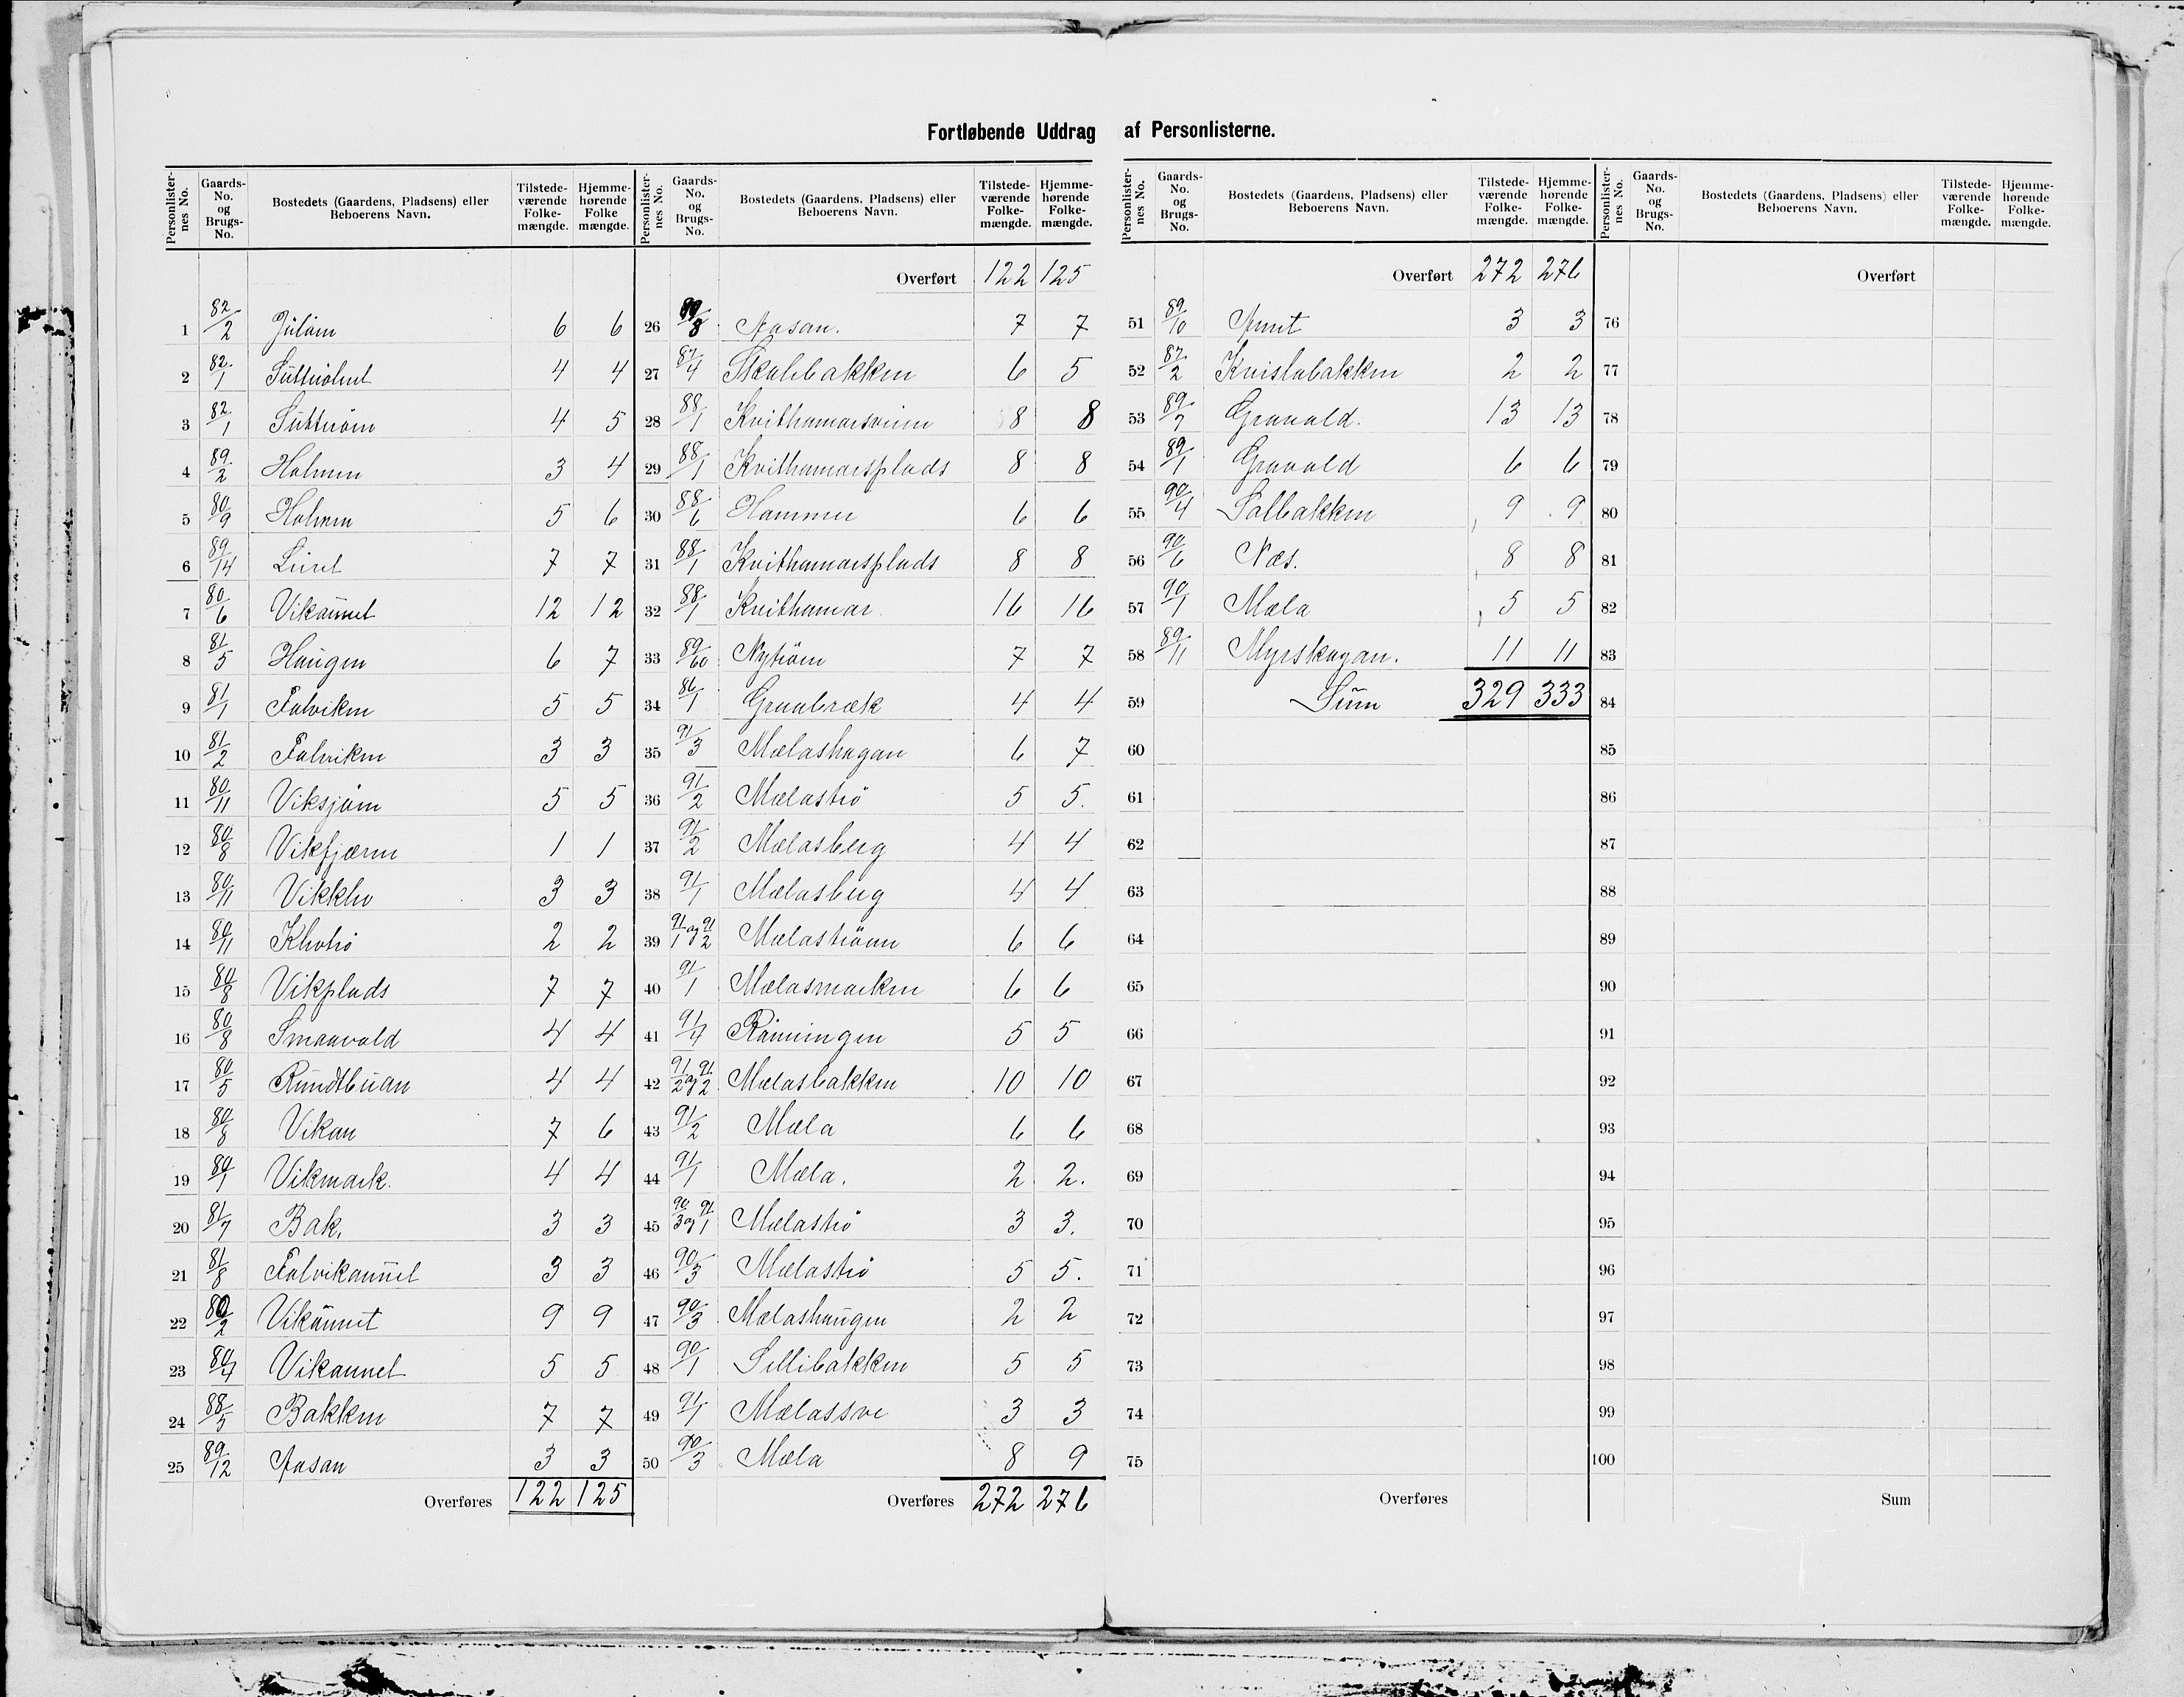 Fortløbende Uddrag af Personlisterne.
Personlisternes No. Gaards-No. og Brugs-No. Bostedets (Gaardens, Pladsens) eller Beboerens Navn. Tilstedeværende Folkemængde. Hjemmehørende Folkemængde.
1 82/2 6 6
2 82/1 4 4
3 82/1 4 5
4 89/2 Holmen 3 4
5 80/9 Holmen 5 6
6 89/14 7 7
7 80/6 Vikaunet 12 12
8 81/5 Haugen 6 7
9 81/1 Falviken 5 5
10 81/2 Falviken 3 3
11 80/11 5 5
12 80/8 Vikfjæren 1 1
13 80/11 Vikklev 3 3
14 80/11 2 2
15 80/8 Vikplads 7 7
16 80/8 Smaavold 4 4
17 80/5 Rundtbuan 4 4
18 80/8 Vikan 7 6
19 80/1 Vikmark. 4 4
20 81/7 Bak. 3 3
21 81/8 Falvikaunet 3 3
22 80/2 Vikaunet 9 9
23 80/4 Vikaunet 5 5
24 88/5 Bakken 7 7
25 89/12 Aasan 3 3
Overføres 122 125
Personlisternes No. Gaards-No. og Brugs-No. Bostedets (Gaardens, Pladsens) eller Beboerens Navn. Tilstedeværende Folkemængde. Hjemmehørende Folkemængde.
Overført 122 125
26 Aasan. 7 7
27 87/4 Skalebakken 6 5
28 88/1 8 8
29 88/1 Kvithamarsplads 8 8
30 88/6 Hammer 6 6
31 88/1 Kvithamarsplads 8 8
32 88/1 Kvithamar 16 16
33 89/60 Nytrøen 7 7
34 86/1 Graabræk 4 4
35 91/3 Mælashagan 6 7
36 91/2 Mælastrø 5 5.
37 91/2 Mælasberg 4 4
38 91/1 Mælasberg 4 4
39 91/1 og 91/2 Mælastrøen 6 6
40 91/1 Mælasmarken 6 6
41 91/4 Rønningen 5 5
42 91/2 og 91/2 Mælasbakken 10 10
43 91/2 Mæla 6 6
44 91/1 Mæla. 2 2.
45 90/3 og 91/1 Mælastrø 3 3.
46 90/3 Mælastrø 5 5.
47 90/3 Mælashaugen 2 2
48 90/1 Sellibakken 5 5
49 91/1 Mælassve 3 3
50 90/3 Mæla 8 9
Overføres 272 276
Personlisternes No. Gaards-No. og Brugs-No. Bostedets (Gaardens, Pladsens) eller Beboerens Navn. Tilstedeværende Folkemængde. Hjemmehørende Folkemængde.
Overført 272 276
51 89/10 3 3
52 87/2 Kvislabakken 2 2
53 89/7 Gravald. 13 13
54 89/1 Gravald 6 6
55 90/4 Solbakken 9 9
56 90/6 Næs. 8 8
57 90/1 Mæla 5 5
58 89/11 Myrskagan. 11 11
59 Sum 329 333
60
61
62
63
64
65
66
67
68
69
70
71
72
73
74
75
Overføres
Personlisternes No. Gaards-No. og Brugs-No. Bostedets (Gaardens, Pladsens) eller Beboerens Navn. Tilstedeværende Folkemængde. Hjemmehørende Folkemængde.
Overført
76
77
78
79
80
81
82
83
84
85
86
87
88
89
90
91
92
93
94
95
96
97
98
99
100
Sum